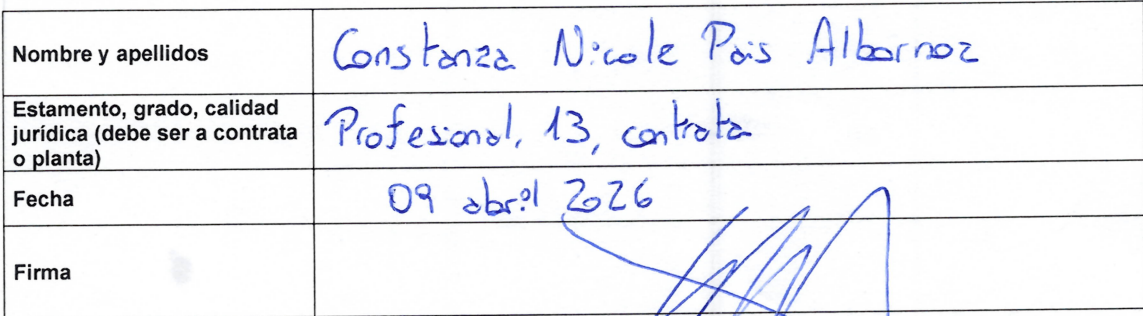 Nombre y apellidos
Constanza Nicole Pais Albornoz
Estamento, grado, calidad
jurídica (debe ser a contrata
o planta)
Profesional, 13, contrata
Fecha
09 abril 2026
Firma